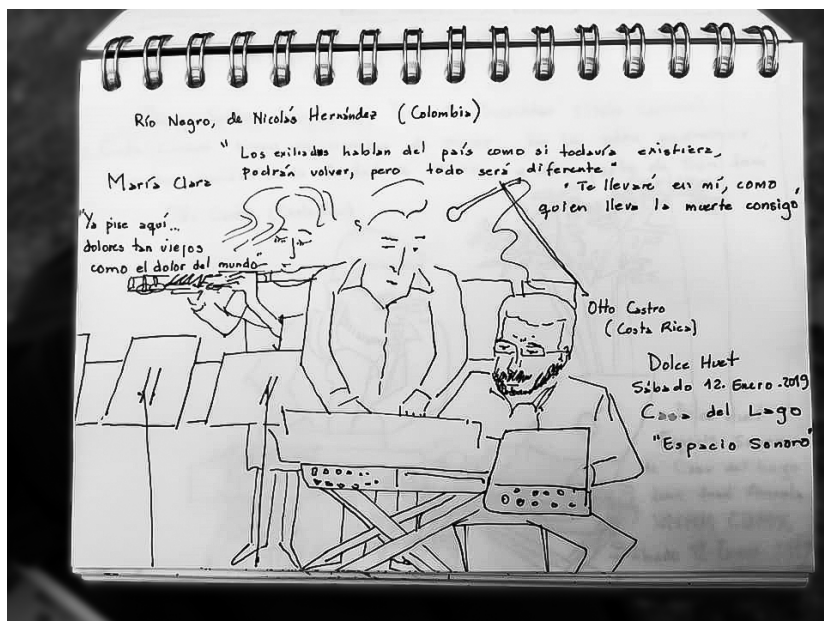 Río Negro, de Nicolás Hernández (Colombia)
"Los exiliados hablan del país como si todavía existiera,
podrán volver, pero todo será diferente"
María Clara
"Te llevaré en mí, como
quien lleva la muerte consigo"
"Ya pise aquí...
dolores tan viejos
como el dolor del mundo"
Otto Castro
(Costa Rica)
Dolce Huet
Sábado 12. Enero. 2019
Casa del Lago
"Espacio Sonoro"